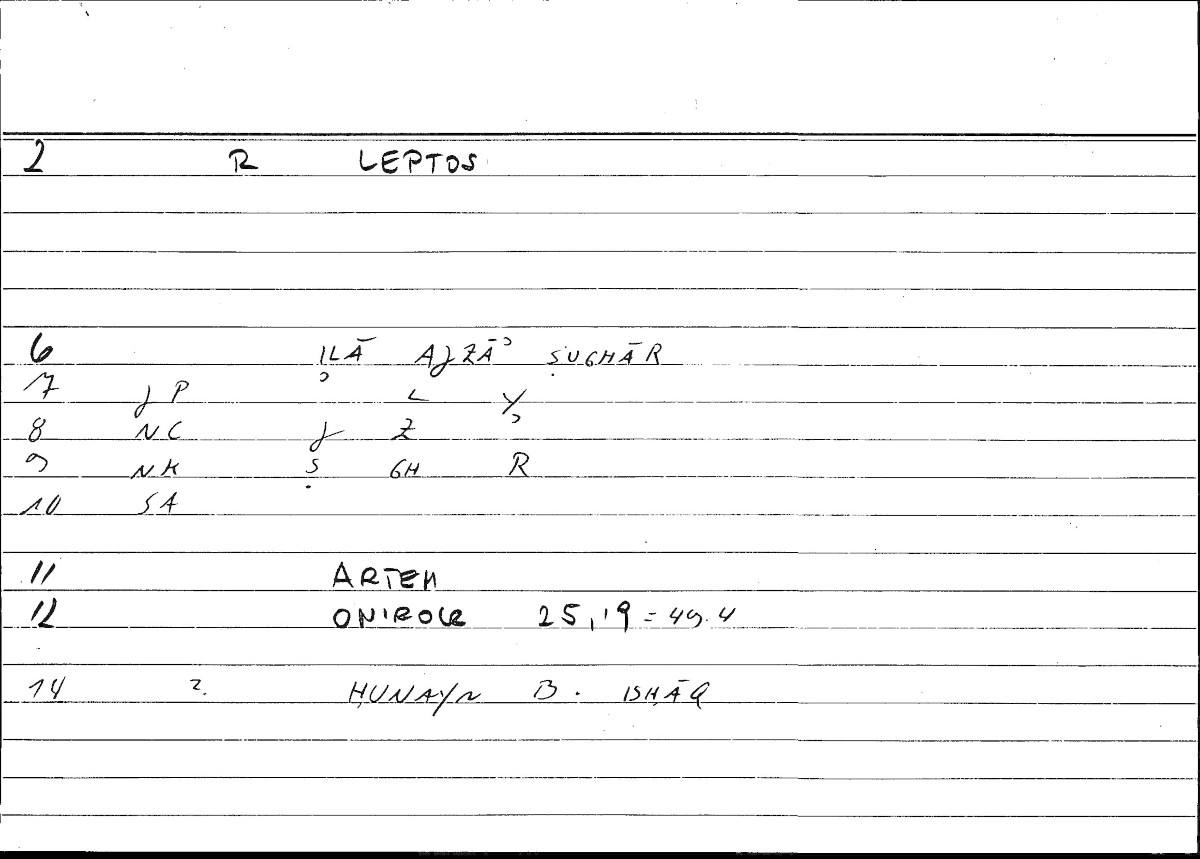 2 R LEPTOS
6 ILĀ AJZĀʾ ṢUGHĀR
7 JP ʾ L Y
8 NC J Z ʾ
9 NK Ṣ GH R
10 SA
11 ARTEM
12 ONIROCR 25,19 = 49.4
14 2. ḤUNAYN B. ISḤĀQ